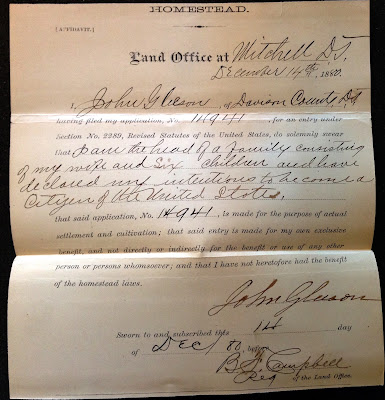 HOMESTEAD.
[AFFIDAVIT.]
Land Office at Mitchell D.T.
December 14th, 1880.
I, John Gleeson, of Davison County D.T.
having filed my application, No. 14941, for an entry under
Section No. 2289, Revised Statutes of the United States, do solemnly swear
that I am the head of a family consisting
of my wife and six children and have
declared my intentions to become a
Citizen of the United States,
that said application, No. 14941, is made for the purpose of actual
settlement and cultivation; that said entry is made for my own exclusive
benefit, and not directly or indirectly for the benefit or use of any other
person or persons whomsoever; and that I have not heretofore had the benefit
of the homestead laws.
John Gleeson
Sworn to and subscribed this 14 day
of Dec / 80, before
Campbell
Reg of the Land Office.